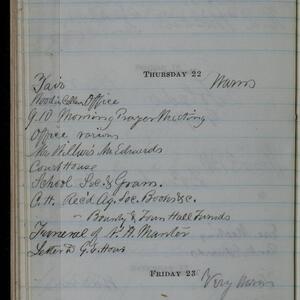 THURSDAY 22
Fair Warm
Wood in Cellar Office
9.10 Morning Prayer Meeting
Office various
Mr Willis Mr Edwards
Court House
School Soc. & Gram.
C.H. Rec'd Ag. Soc. Books &c.
- Bounty & Town Hall Funds
Funeral of A. Marter
Letter D G. & Hour
FRIDAY 23 Very Warm